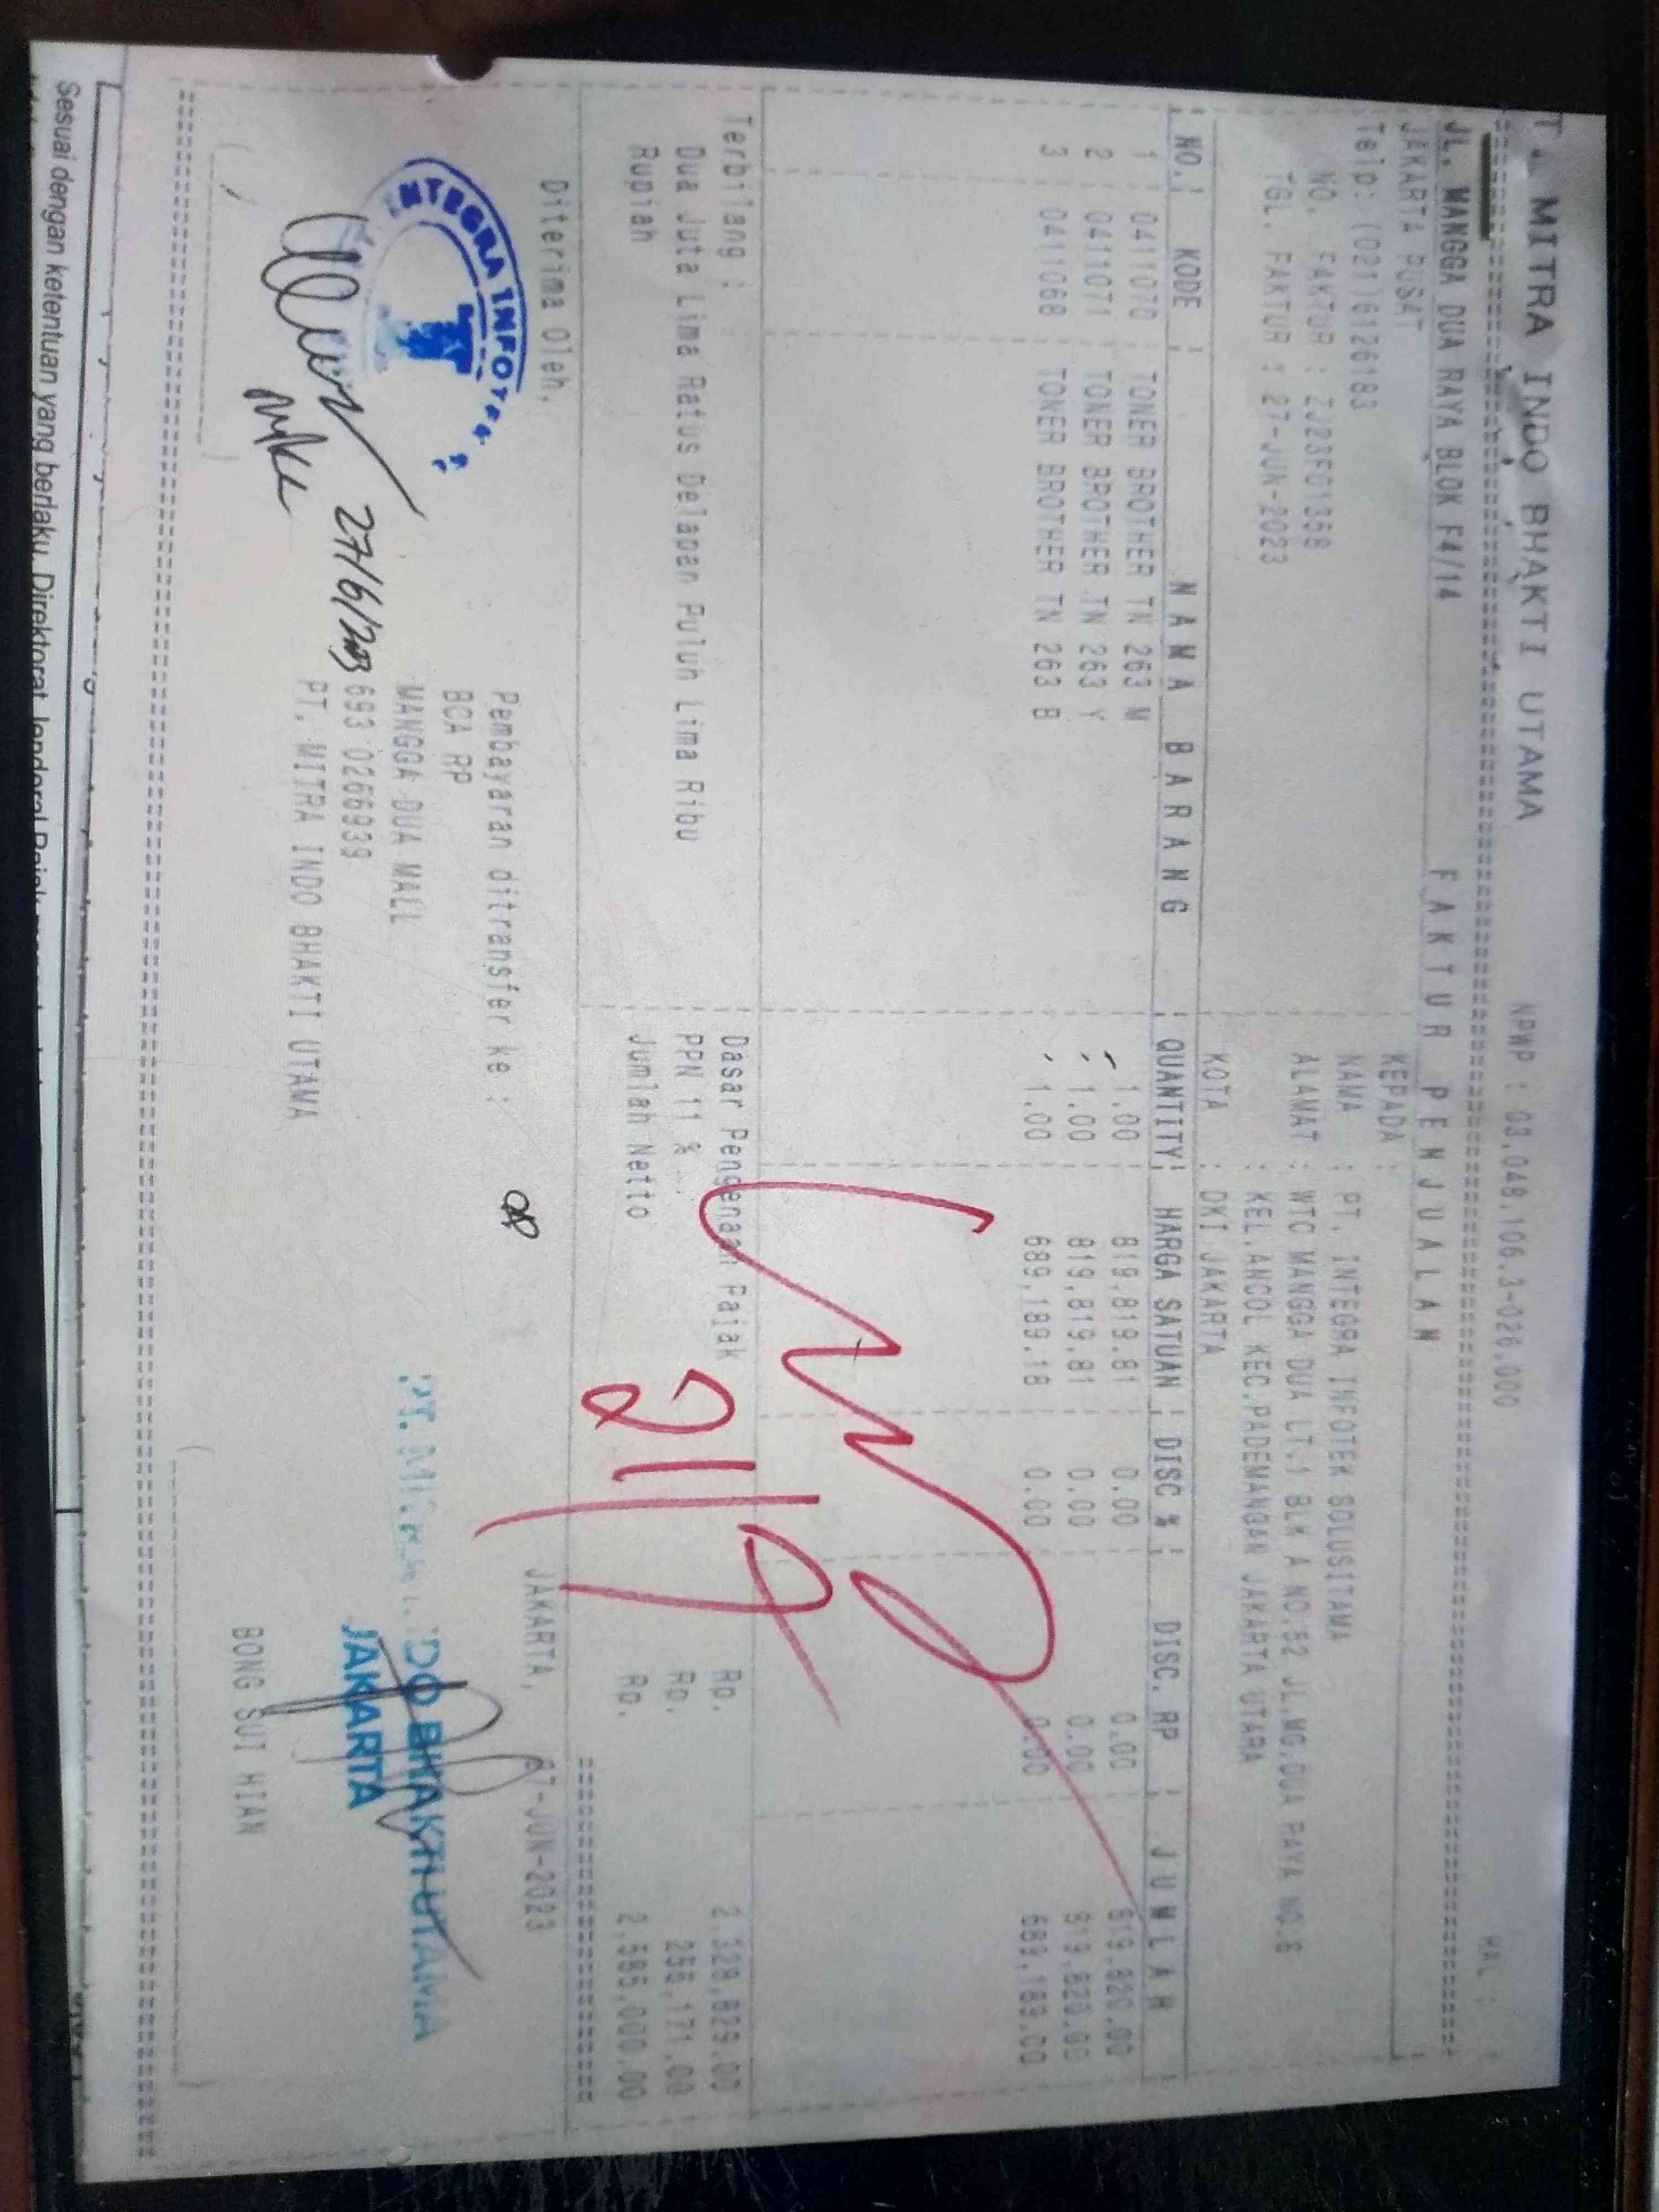 T. MITRA INDO BHAKTI UTAMA NPWP : 03.048.106.3-026.000 HAL :
JL. MANGGA DUA RAYA BLOK F4/14 FAKTUR PENJUALAN
JAKARTA PUSAT KEPADA :
Telp: (021)6126183 NAMA : PT. INTEGRA INFOTEK SOLUSITAMA
NO. FAKTUR : ZJ23F01358 ALAMAT : WTC MANGGA DUA LT.1 BLK A NO.52 JL.MG.DUA RAYA NO.8
TGL. FAKTUR : 27-JUN-2023 : KEL.ANCOL KEC.PADEMANGAN JAKARTA UTARA
KOTA : DKI JAKARTA
NO. KODE NAMA BARANG QUANTITY HARGA SATUAN DISC % DISC. RP JUMLAH
1 0411070 TONER BROTHER TN 263 M 1.00 819,819.81 0.00 0.00 819,820.00
2 0411071 TONER BROTHER TN 263 Y 1.00 819,819.81 0.00 0.00 819,820.00
3 0411068 TONER BROTHER TN 263 B 1.00 689,189.18 0.00 0.00 689,189.00
Terbilang : Dasar Pengenaan Pajak Rp. 2,328,829.00
Dua Juta Lima Ratus Delapan Puluh Lima Ribu PPN 11 % Rp. 256,171.00
Rupiah Jumlah Netto Rp. 2,585,000.00
Diterima Oleh, JAKARTA, 27-JUN-2023
Pembayaran ditransfer ke :
BCA RP
MANGGA DUA MALL
693 0266939
PT. MITRA INDO BHAKTI UTAMA
INTEGRA INFOTEK
27/6/2023
JAKARTA
BONG SUI HIAN
Sesuai dengan ketentuan yang berlaku, Direktorat Jenderal Pajak